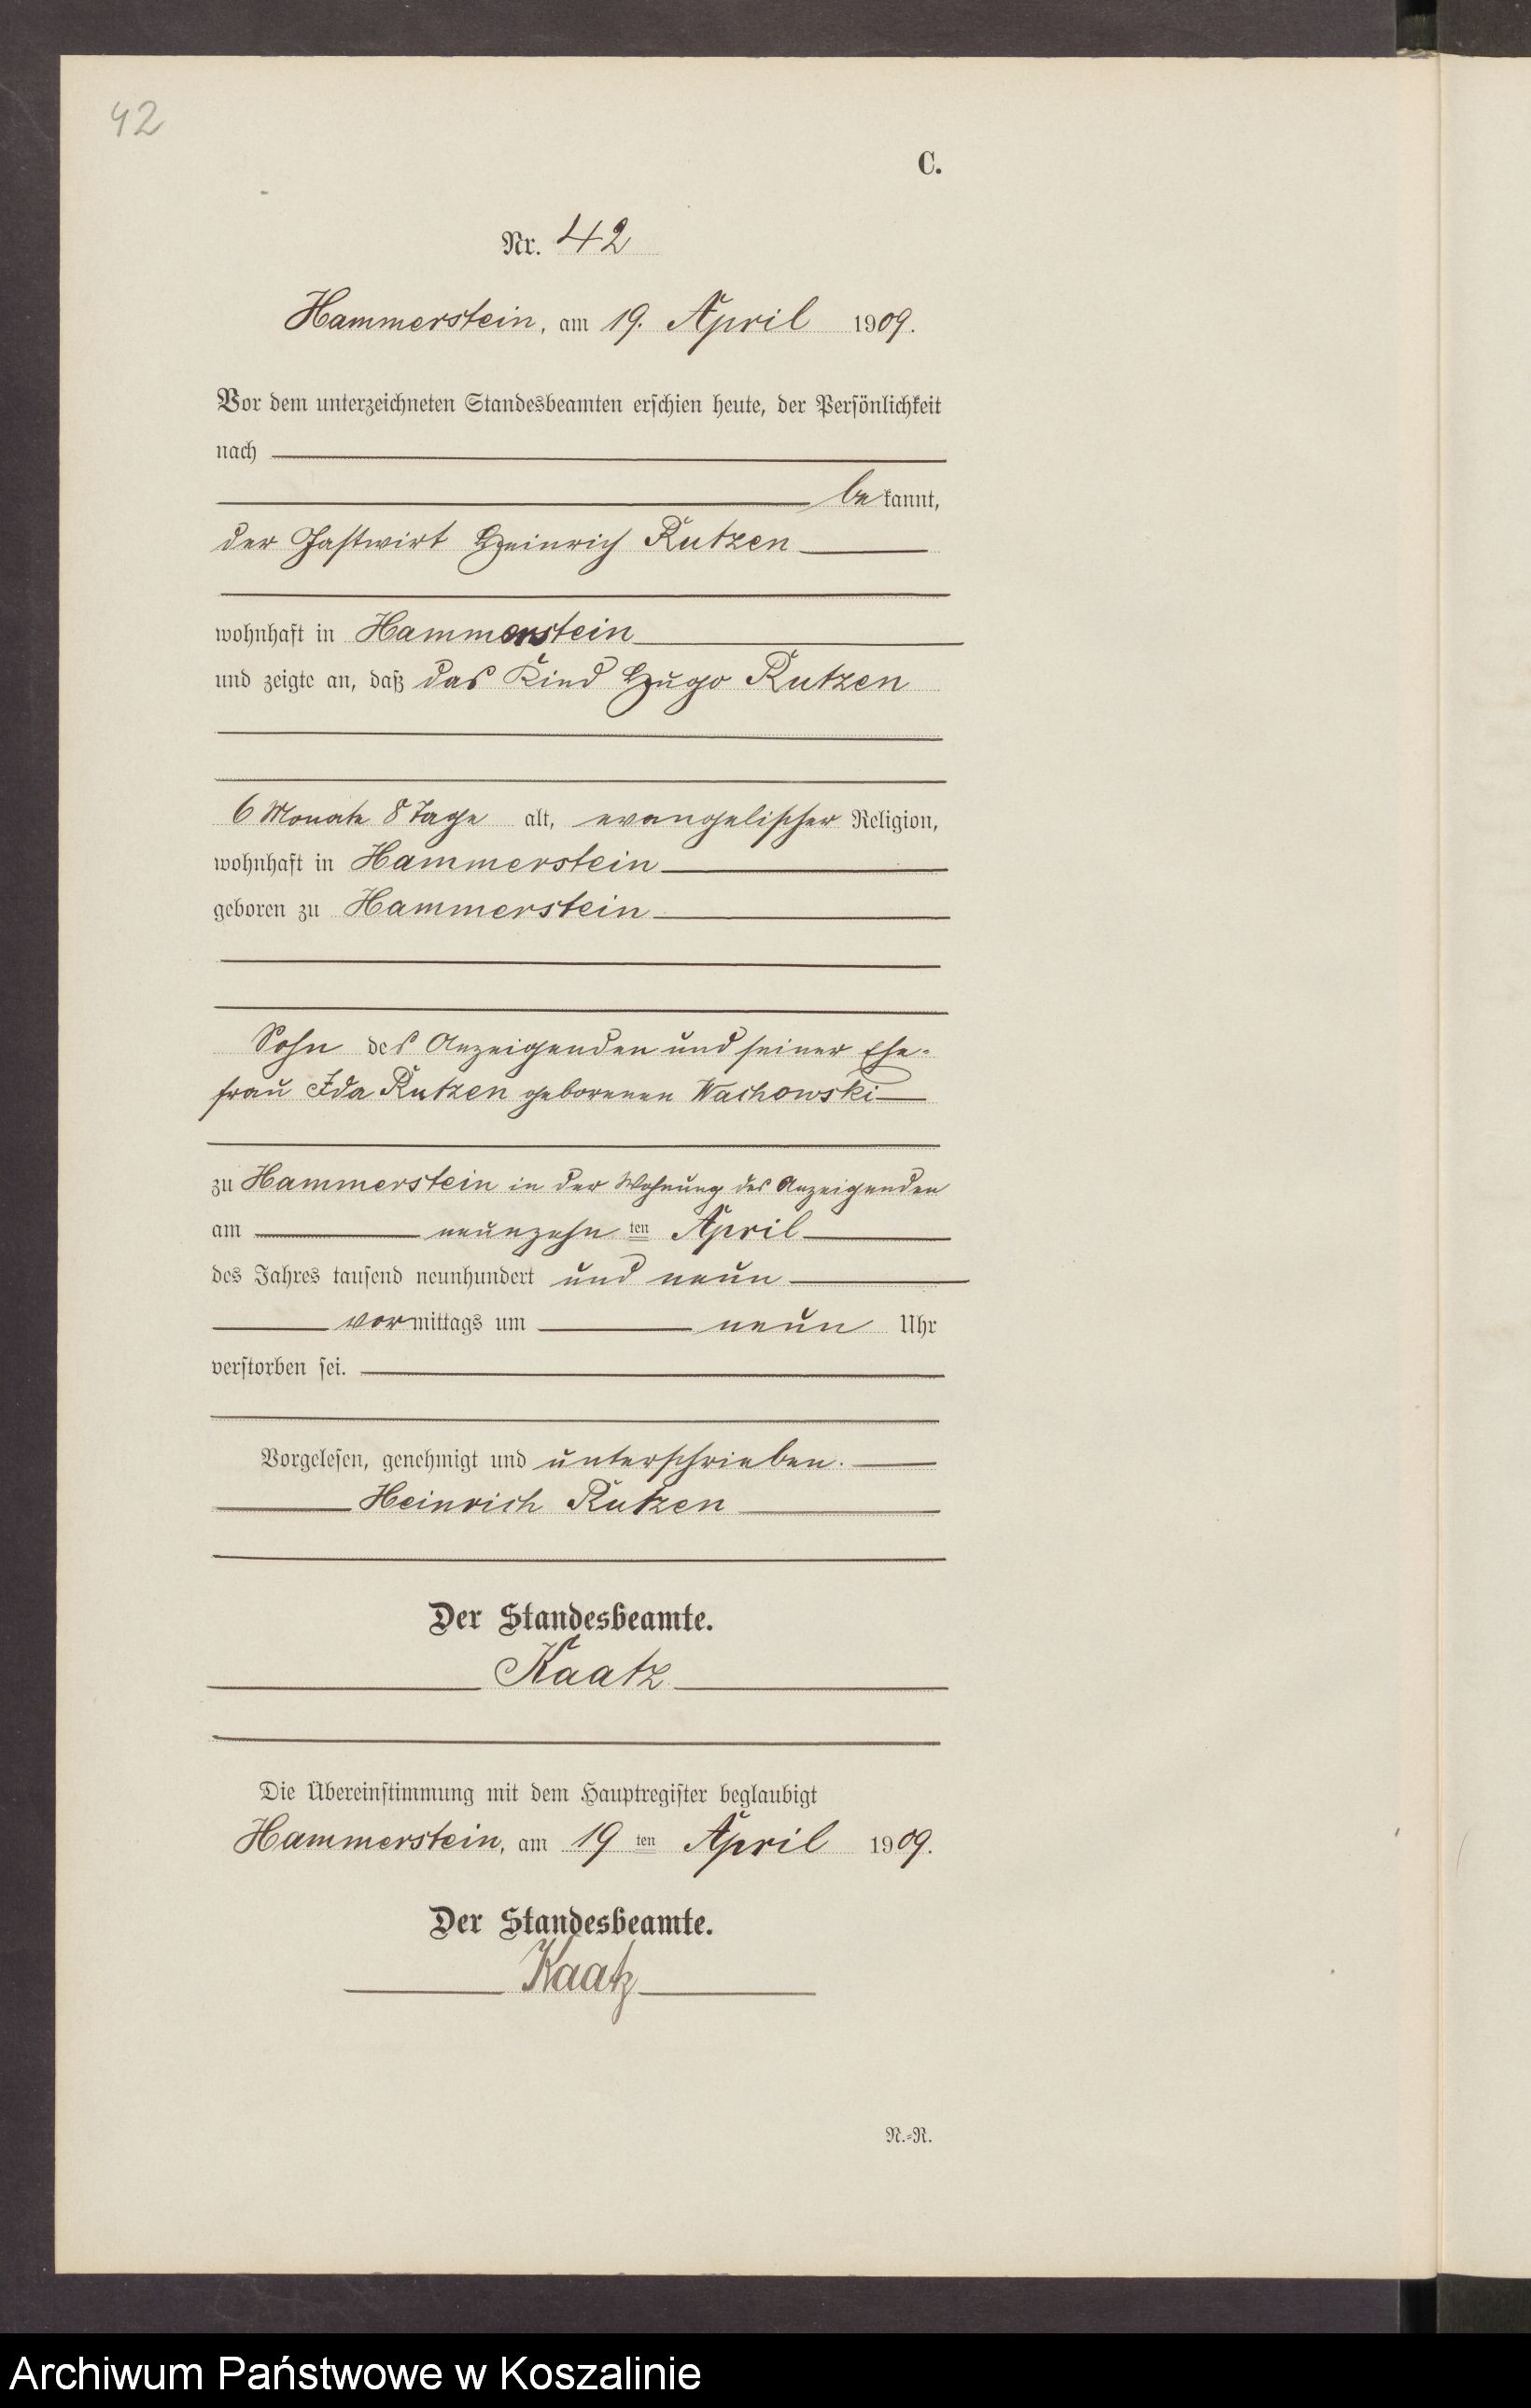 42
C.
Nr. 42
Hammerstein, am 19. April 1909.
Vor dem unterzeichneten Standesbeamten erschien heute, der Persönlichkeit
nach
bekannt,
der Gastwirt Heinrich Rutzen
wohnhaft in Hammerstein
und zeigte an, daß das Kind Hugo Rutzen
6 Monate 8 Tage alt, evangelischer Religion,
wohnhaft in Hammerstein
geboren zu Hammerstein
Sohn des Anzeigenden und seiner Ehe-
frau Ida Rutzen geborenen Wachowski
zu Hammerstein in der Wohnung des Anzeigenden
am neunzehn ten April
des Jahres tausend neunhundert und neun
vormittags um neun Uhr
verstorben sei.
Vorgelesen, genehmigt und unterschrieben.
Heinrich Rutzen
Der Standesbeamte.
Kaatz
Die Übereinstimmung mit dem Hauptregister beglaubigt
Hammerstein, am 19 ten April 1909.
Der Standesbeamte.
Kaatz
N.-R.
Archiwum Państwowe w Koszalinie